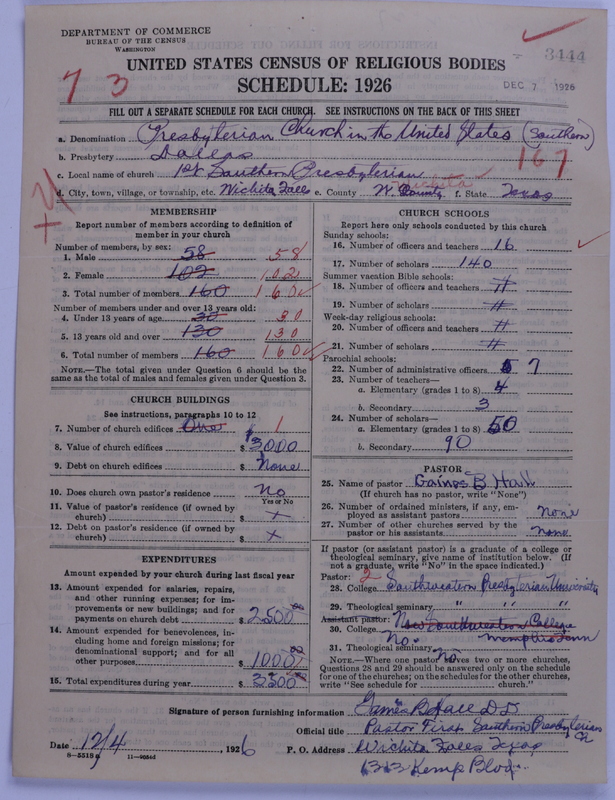 DEPARTMENT OF COMMERCE
BUREAU OF THE CENSUS
WASHINGTON
3444
UNITED STATES CENSUS OF RELIGIOUS BODIES
SCHEDULE: 1926
DEC 7 1926
7 3
FILL OUT A SEPARATE SCHEDULE FOR EACH CHURCH. SEE INSTRUCTIONS ON THE BACK OF THIS SHEET
a. Denomination Presbyterian Church in the United States (Southern)
b. Presbytery Dallas 167
c. Local name of church 1st Southern Presbyterian
d. City, town, village, or township, etc. Wichita Falls e. County Wichita County f. State Texas
MEMBERSHIP
Report number of members according to definition of member in your church
Number of members, by sex:
1. Male 58 58
2. Female 102 102
3. Total number of members 160 160
Number of members under and over 13 years old:
4. Under 13 years of age 30 30
5. 13 years old and over 130 130
6. Total number of members 160 160
NOTE.—The total given under Question 6 should be the same as the total of males and females given under Question 3.
CHURCH BUILDINGS
See instructions, paragraphs 10 to 12
7. Number of church edifices One 1
8. Value of church edifices $3000
9. Debt on church edifices $ None
10. Does church own pastor's residence No
Yes or No
11. Value of pastor's residence (if owned by church) $ x
12. Debt on pastor's residence (if owned by church) $ x
EXPENDITURES
Amount expended by your church during last fiscal year
13. Amount expended for salaries, repairs, and other running expenses; for improvements or new buildings; and for payments on church debt $ 2500 00
14. Amount expended for benevolences, including home and foreign missions; for denominational support; and for all other purposes $ 1000 00
15. Total expenditures during year $ 3500 00
CHURCH SCHOOLS
Report here only schools conducted by this church
Sunday schools:
16. Number of officers and teachers 16
17. Number of scholars 140
Summer vacation Bible schools:
18. Number of officers and teachers
19. Number of scholars
Week-day religious schools:
20. Number of officers and teachers
21. Number of scholars
Parochial schools:
22. Number of administrative officers 7
23. Number of teachers—
a. Elementary (grades 1 to 8) 4
b. Secondary 3
24. Number of scholars—
a. Elementary (grades 1 to 8) 50
b. Secondary 90
PASTOR
25. Name of pastor Gaines B Hall
(If church has no pastor, write "None")
26. Number of ordained ministers, if any, employed as assistant pastors none
27. Number of other churches served by the pastor or his assistants none
If pastor (or assistant pastor) is a graduate of a college or theological seminary, give name of institution below. (If not a graduate, write "No" in the space indicated.)
Pastor: 2
28. College Southwestern Presbyterian University
29. Theological seminary " " "
Assistant pastor: Now Southwestern College
30. College No Memphis Tenn
31. Theological seminary No
NOTE.—Where one pastor serves two or more churches, Questions 28 and 29 should be answered only on the schedule for one of the churches; on the schedules for the other churches, write "See schedule for church."
Signature of person furnishing information Gaines B Hall D.D.
Official title Pastor First Southern Presbyterian Ch
Date 12/4, 1926 P. O. Address Wichita Falls Texas
8—5518 11—9864d 1313 Kemp Blvd.